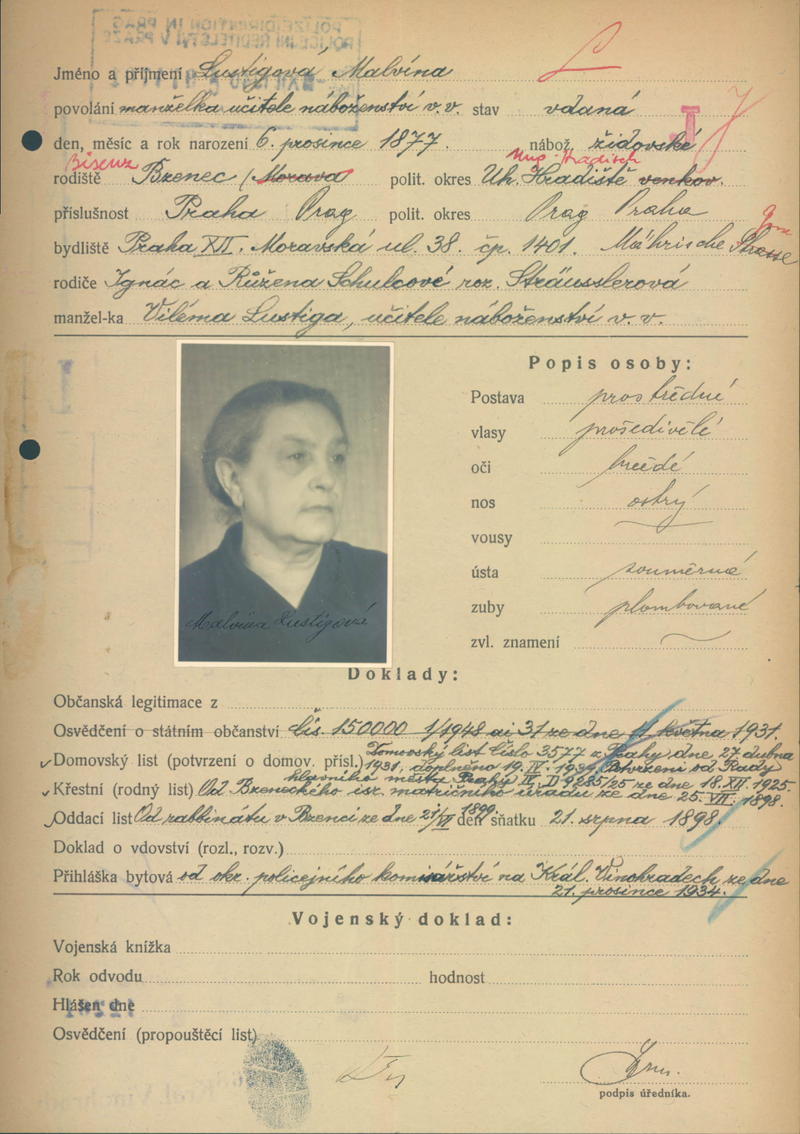 POLIZEIDIREKTION IN PRAG
POLICEJNÍ ŘEDITELSTVÍ V PRAZE
L
Jméno a příjmení Lustigová Malvína
povolání manželka učitele náboženství v.v. stav vdaná
J
den, měsíc a rok narození 6. prosince 1877. nábož. židovské
Bisenz Ung. Hradisch
rodiště Bzenec /Morava polit. okres Uh. Hradiště venkov.
příslušnost Praha Prag polit. okres Prag Praha
bydliště Praha XII. Moravská ul. 38. čp. 1401. Mährische Strasse
rodiče Ignác a Růžena Schulcové roz. Sträusslerová
manžel-ka Viléma Lustiga, učitele náboženství v. v.
Popis osoby:
Postava prostřední
vlasy prošedivělé
oči hnědé
nos ostrý
vousy
ústa souměrná
zuby plombované
zvl. znamení
Malvína Lustigová
Doklady:
Občanská legitimace z
Osvědčení o státním občanství Čís. 150000 1/1948 ai 31 ze dne 11 května 1931.
Domovský list (potvrzení o domov. přísl.) Domovský list číslo 3577 z Prahy dne 27 dubna
1931, doplněno 19. IV. 1934, Potvrzení od Rady
hlavního města Prahy IV. D 9385/25 ze dne 18. XII. 1925.
Křestní (rodný list) Od Bzeneckého isr. matričního úřadu ze dne 25. VII. 1898.
Oddací list Od rabbinátu v Bzenci ze dne 21/VIII 1899 den sňatku 21. srpna 1898.
Doklad o vdovství (rozl., rozv.)
Přihláška bytová od okr. policejního komisařství na Král. Vinohradech ze dne
21. prosince 1934.
Vojenský doklad:
Vojenská knížka
Rok odvodu hodnost
Hlášen dne
Osvědčení (propouštěcí list)
podpis úředníka.